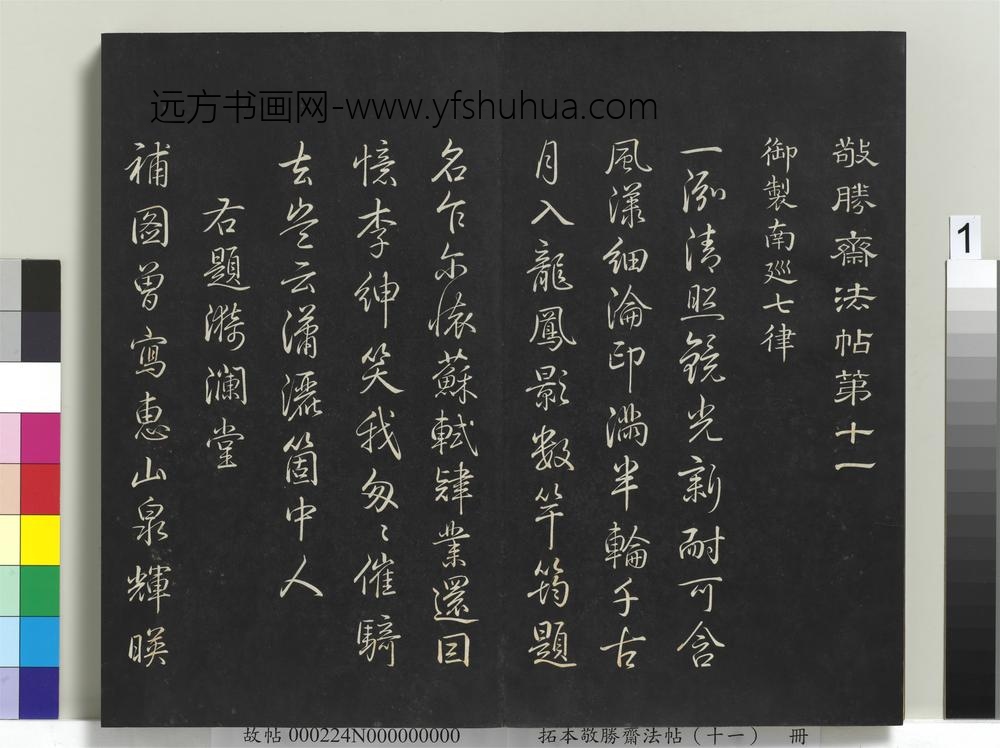 远方书画网-www.yfshuhua.com
敬勝齋法帖第十一
御製南廵七律
一泓清照鏡光新耐可含
風漾細淪印滿半輪千古
月入龍鳳影數竿筠題
名乍尔懷蘇軾肄業還因
憶李紳笑我匆〻催騎
去豈云瀟灑箇中人
右題漪瀾堂
補圖曾寫惠山泉輝暎
1
故帖 000224N000000000
拓本敬勝齋法帖（十一） 冊